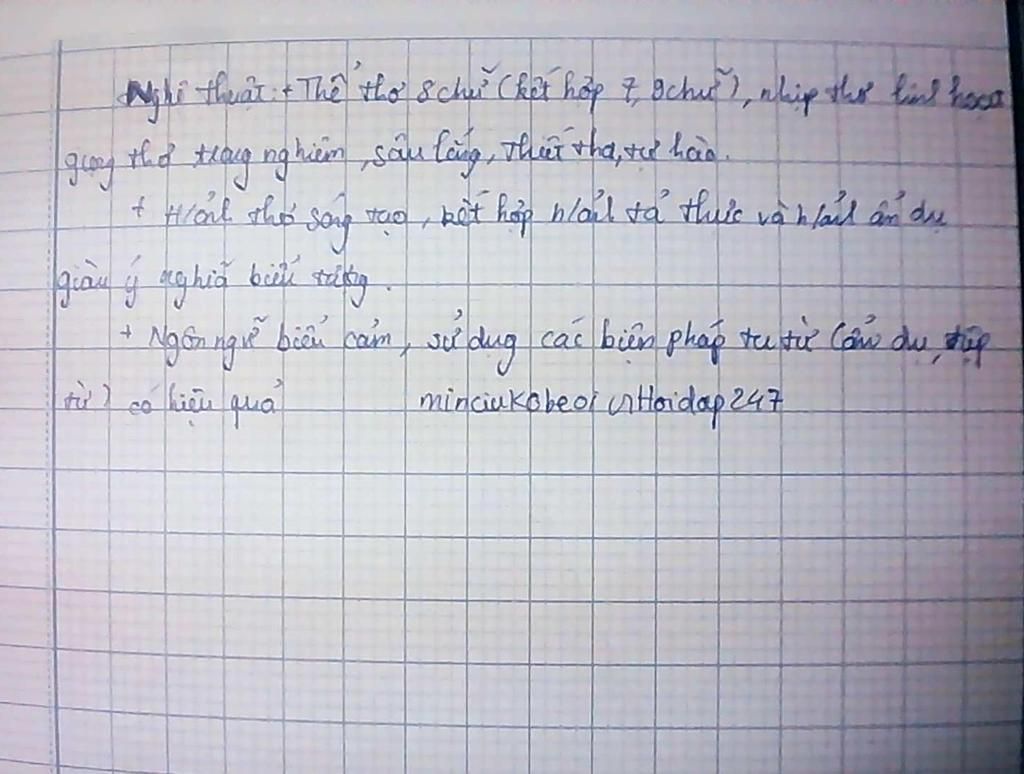 Nghệ thuật: + Thể thơ 8 chữ (kết hợp 7, 9 chữ), nhịp thơ linh hoạt
giọng thơ trang nghiêm, sâu lắng, thiết tha, tự hào.
+ H/ảnh thơ sáng tạo, kết hợp h/ảnh tả thực và h/ảnh ẩn dụ
giàu ý nghĩa biểu tượng.
+ Ngôn ngữ biểu cảm, sử dụng các biện pháp tu từ (ẩn dụ, điệp
từ) có hiệu quả minciukobeoi Hoidap247